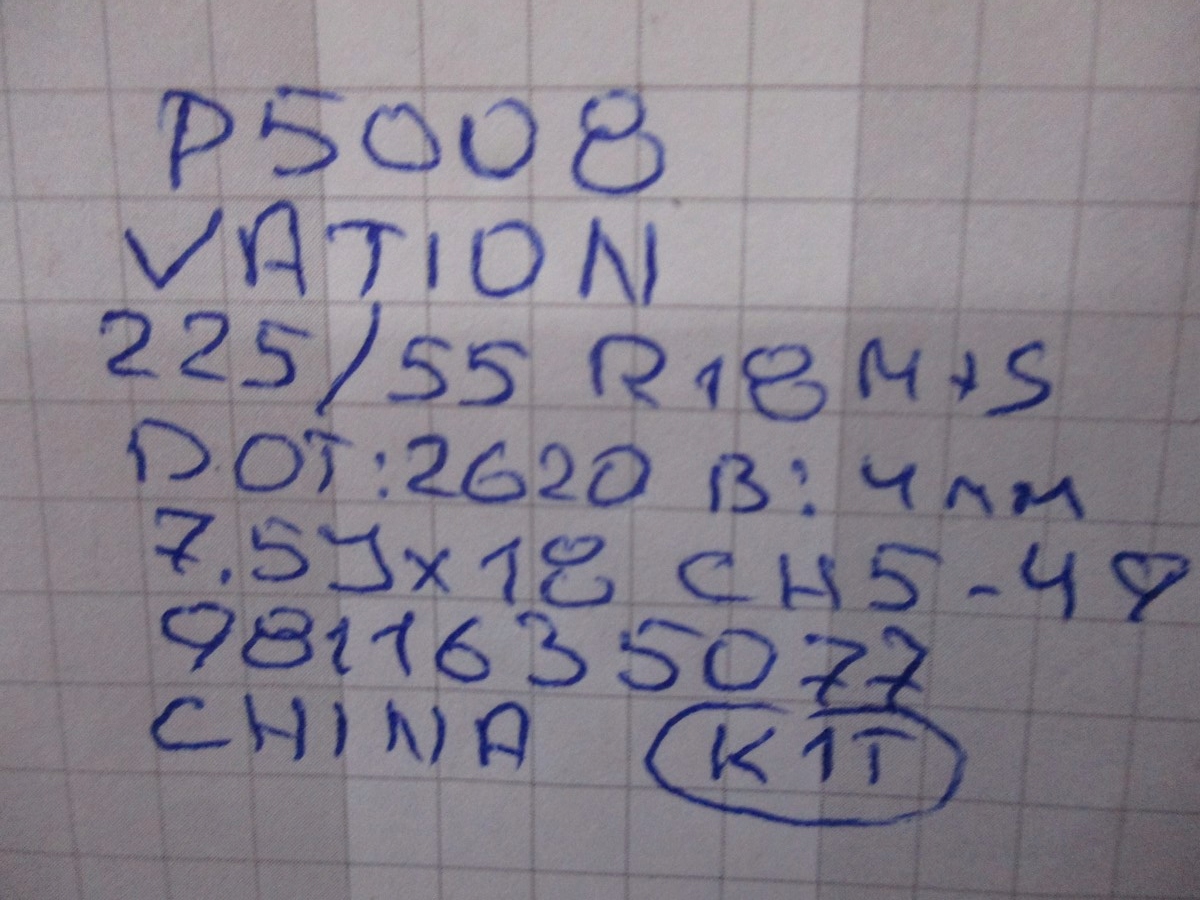 P5008
VATION
225/55 R18 M+S
DOT:2620 B: 4мм
7.5Jx18 CH5-49
9811635077
CHINA K1T